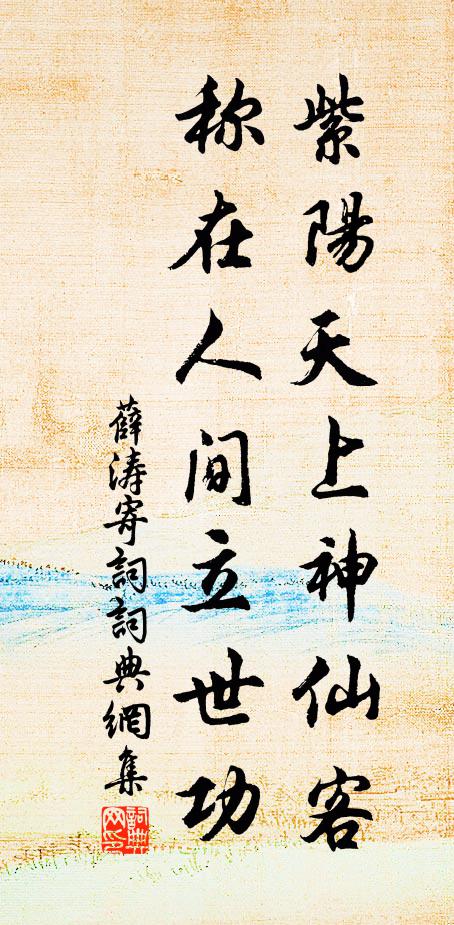 紫陽天上神仙客
称在人间立世功
薛涛寄詞詞典網集
詞典網印